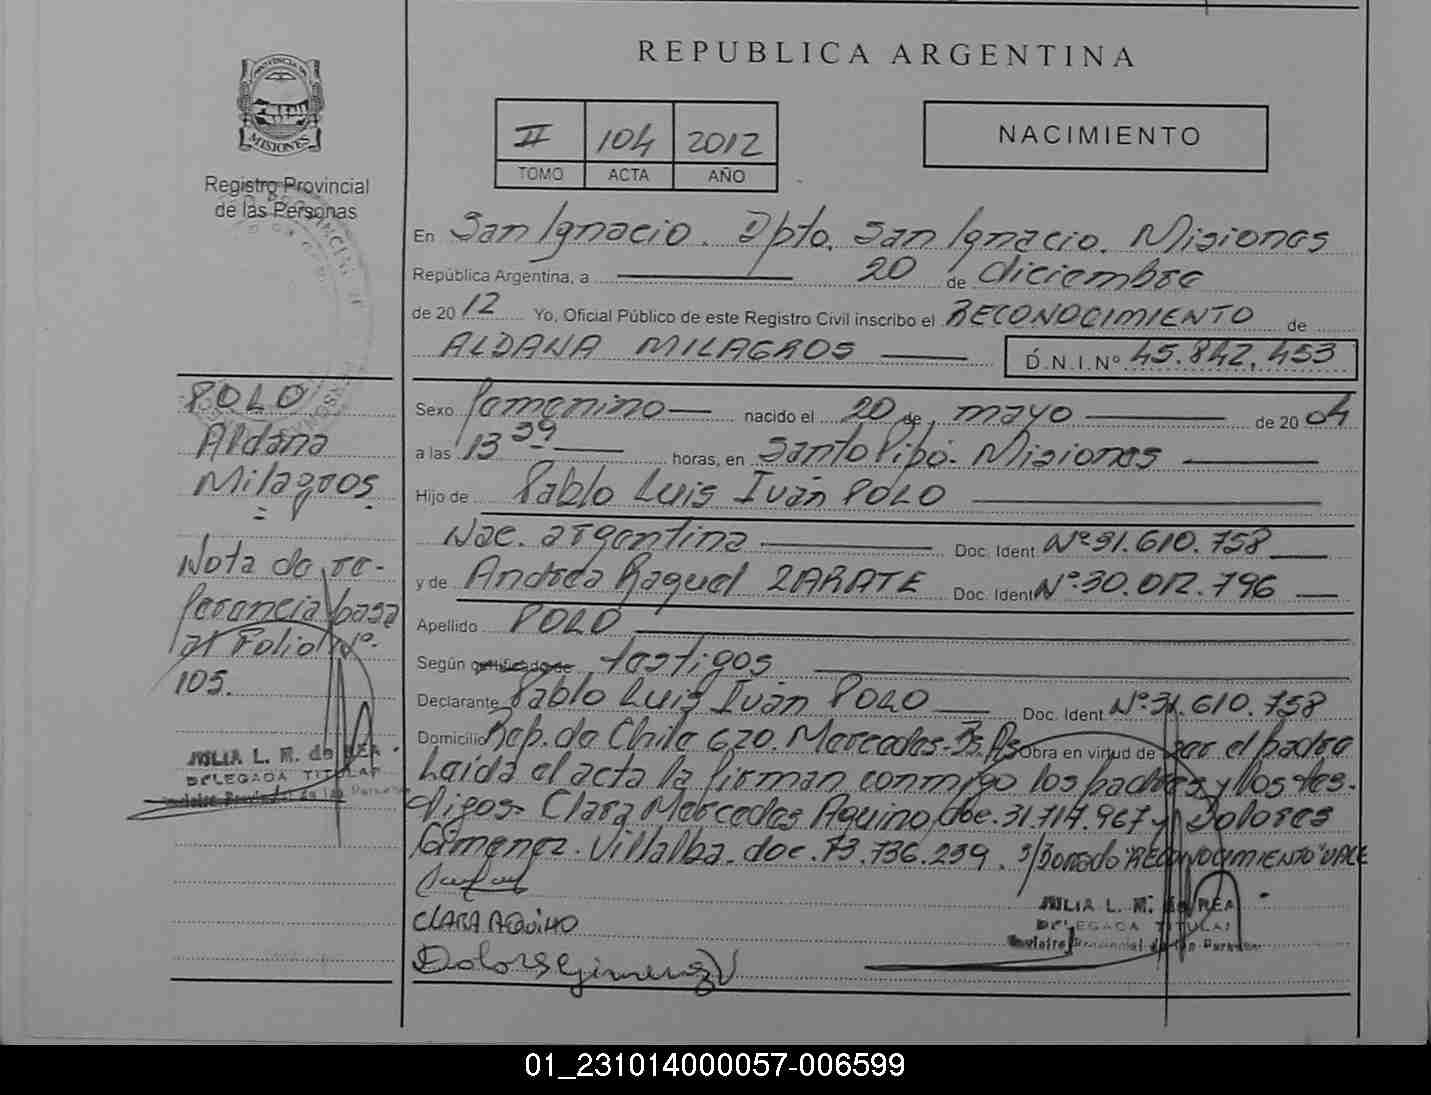 REPUBLICA ARGENTINA
PROVINCIA DE
MISIONES
Registro Provincial
de las Personas
II 104 2012
TOMO ACTA AÑO
NACIMIENTO
En San Ignacio. Dpto. San Ignacio. Misiones
República Argentina, a 20 de diciembre
de 2012 Yo, Oficial Público de este Registro Civil inscribo el RECONOCIMIENTO de
ALDANA MILAGROS D.N.I.Nº 45.842.453
POLO
Aldana
Milagros
Nota de re-
ferencia pasa
al Folio Nº.
105.
JULIA L. M. de REA
DELEGADA TITULAR
Registro Provincial de las Personas
Sexo femenino nacido el 20 de mayo de 2004
a las 13 39 horas, en Santo Pipó. Misiones
Hijo de Pablo Luis Iván POLO
Nac. argentina Doc. Ident Nº 31.610.758
y de Andrea Raquel ZARATE Doc. Ident Nº 30.012.796
Apellido POLO
Según certificado de testigos
Declarante Pablo Luis Iván POLO Doc. Ident Nº 31.610.758
Domicilio Rep. de Chile 620. Mercedes. Bs. As Obra en virtud de ser el padre
Leída el acta la firman conmigo los padres y los tes-
tigos= Clara Mercedes Aquino, doc. 31.717.967 y Dolores
Gimenez. Villalba. doc. 73.736.239. s/borrado "RECONOCIMIENTO" VALE
CLARA AQUINO
Dolores Gimenez V
JULIA L. M. de REA
DELEGADA TITULAR
Registro Provincial de las Personas
01_231014000057-006599